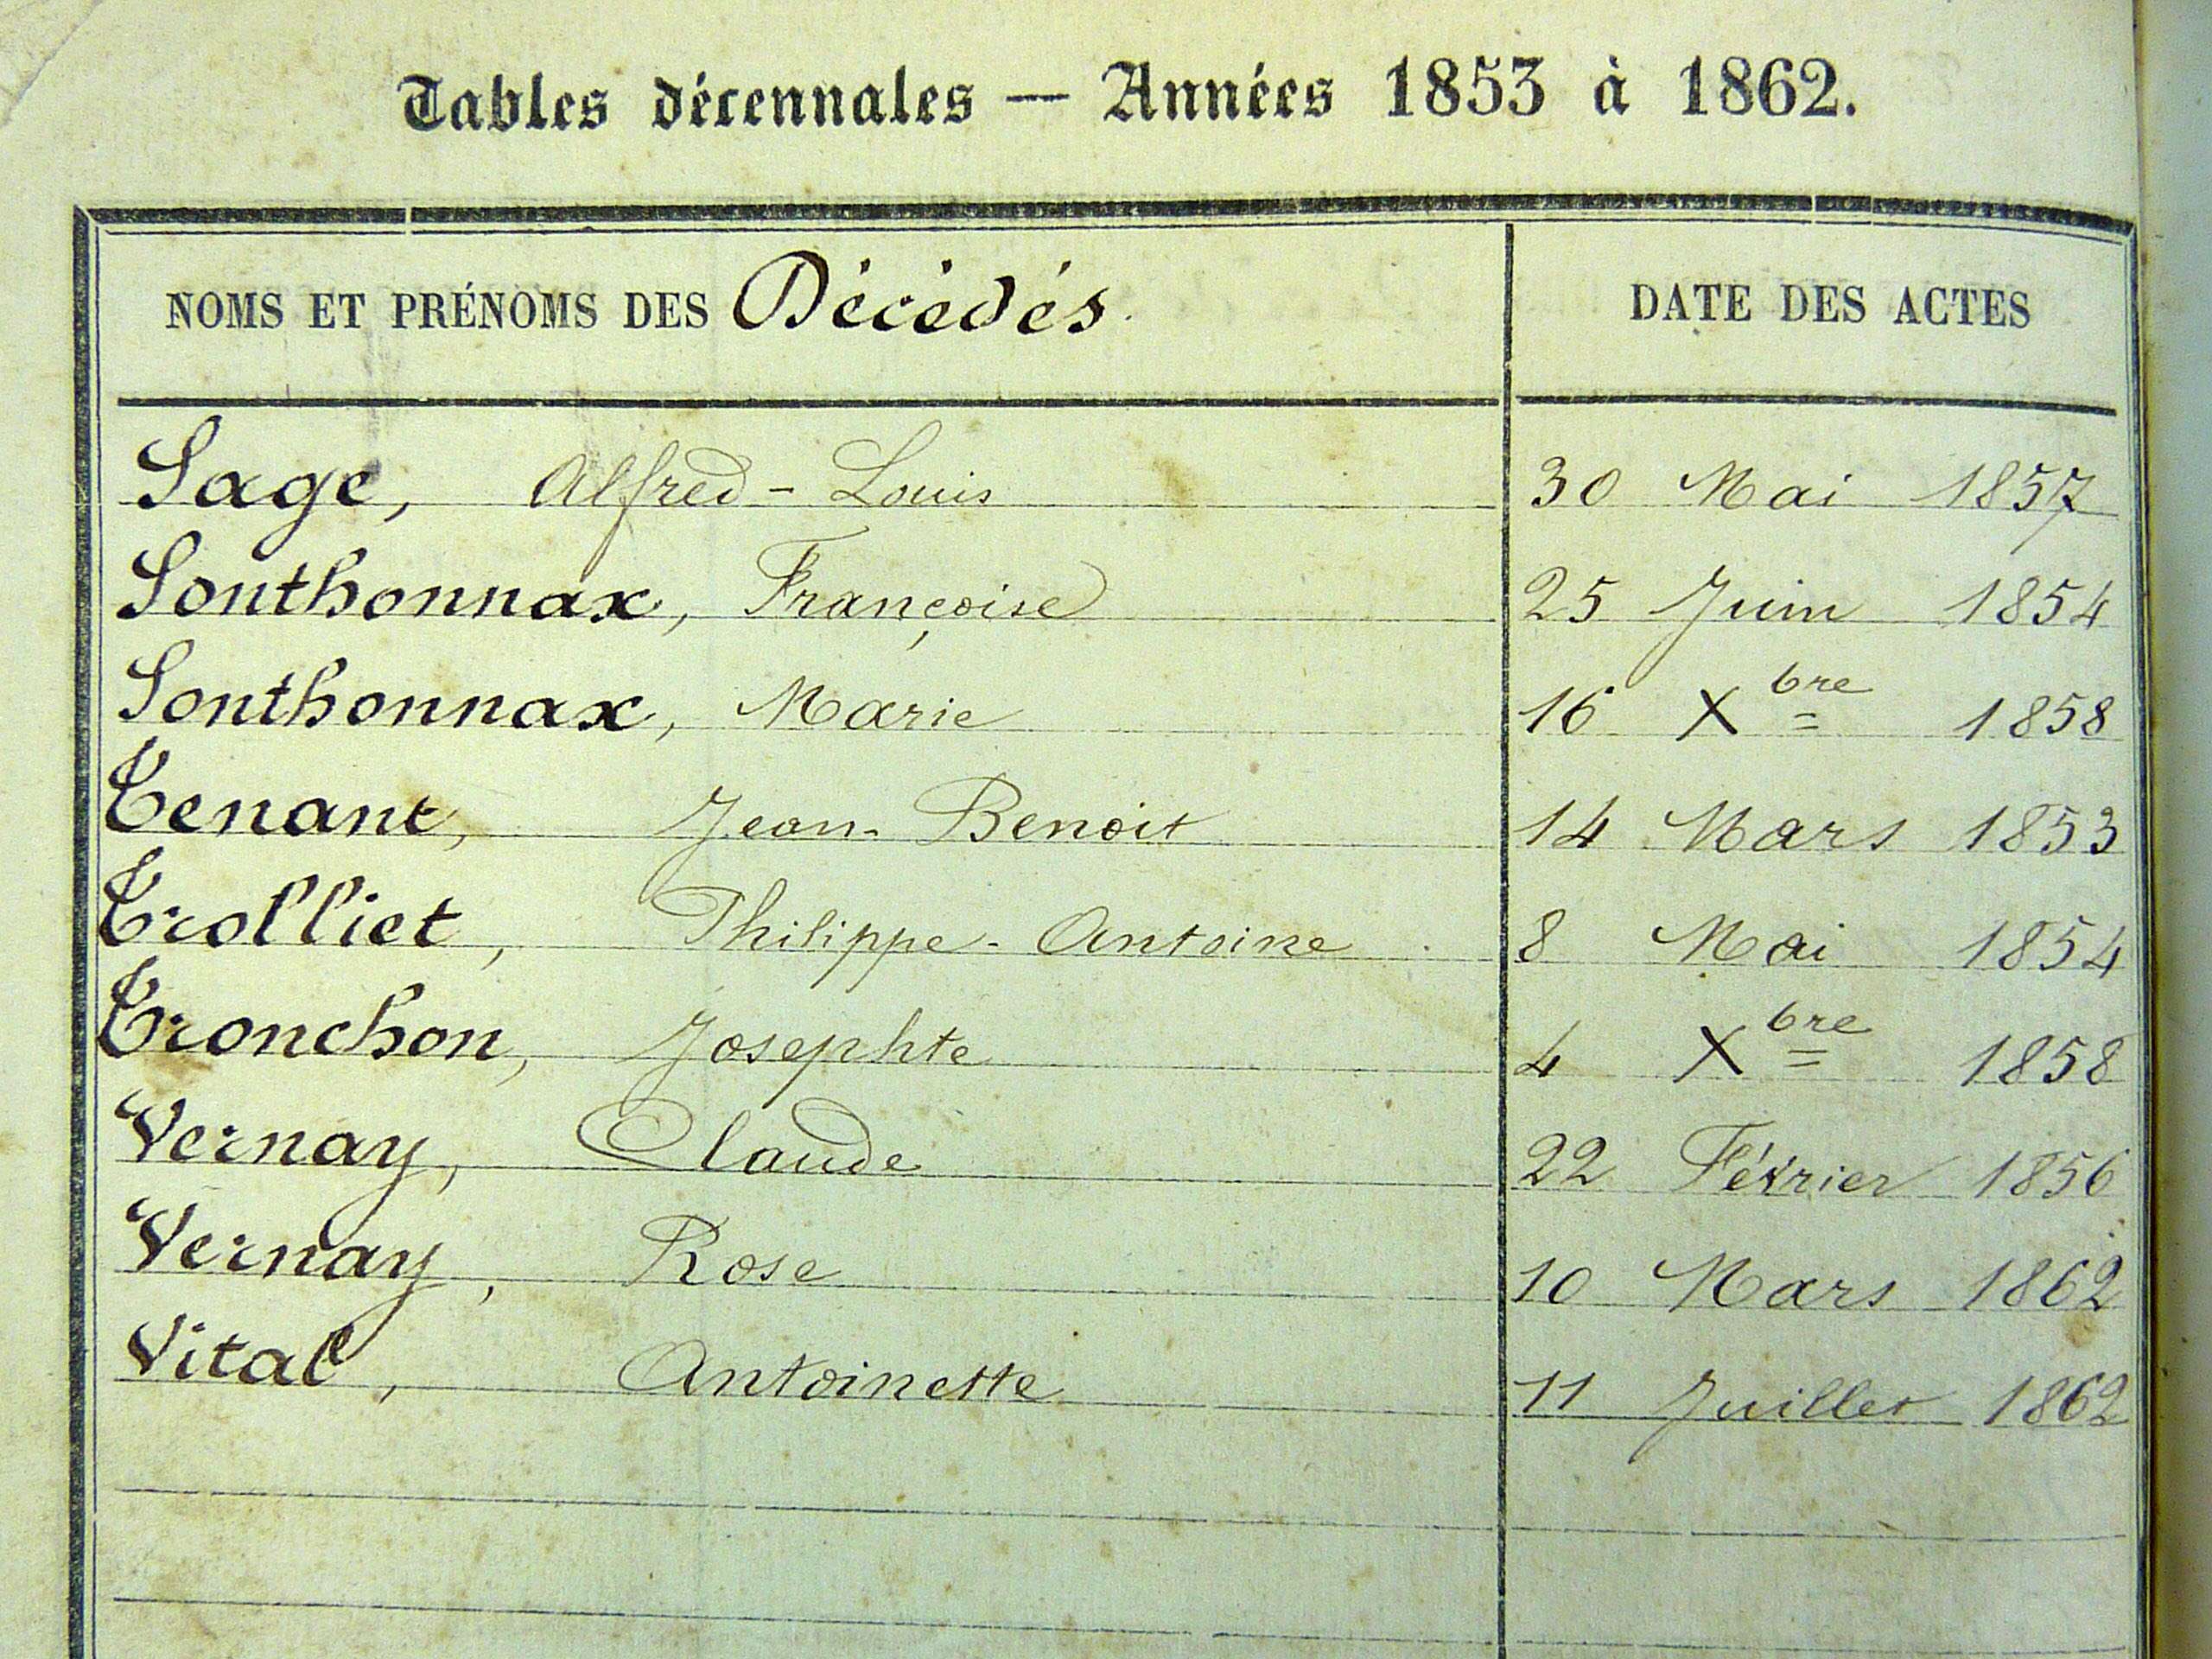 Tables décennales — Années 1853 à 1862.
NOMS ET PRÉNOMS DES Décédés. DATE DES ACTES
Sage, Alfred-Louis 30 Mai 1857
Sonthonnax, Françoise 25 Juin 1854
Sonthonnax, Marie 16 Xbre 1858
Tenant, Jean-Benoit 14 Mars 1853
Trolliet, Philippe-Antoine 8 Mai 1854
Tronchon, Josephte 4 Xbre 1858
Vernay, Claude 22 Février 1856
Vernay, Rose 10 Mars 1862
Vital, Antoinette 11 Juillet 1862